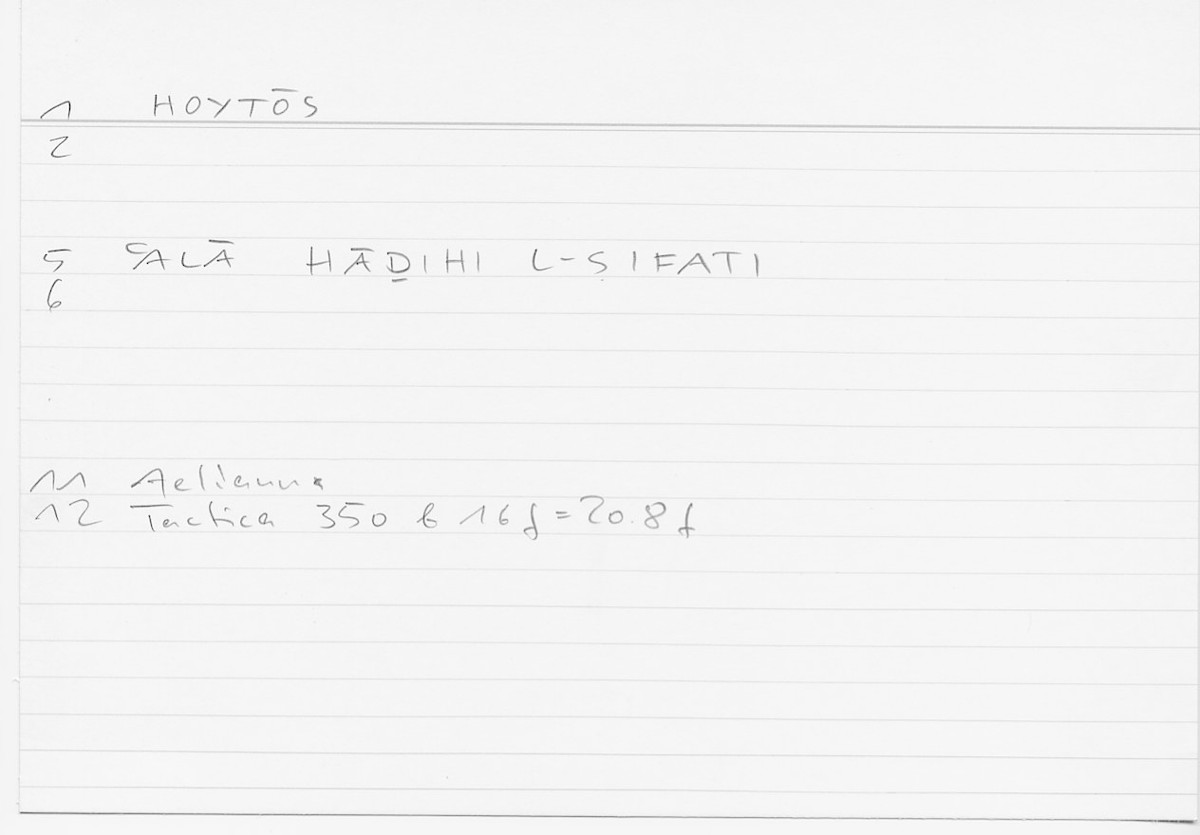 1 HOYTŌS
2
5 ʿALĀ HĀḎIHI L-ṢIFATI
6
11 Aelianus
12 Tactica 350 b 16 f = 20.8 f